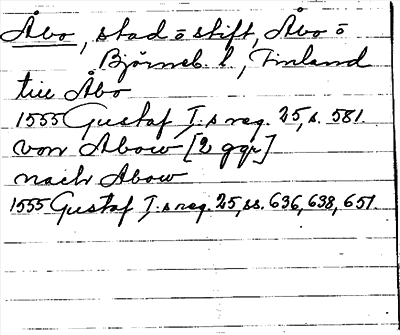 Åbo, stad o stift, Åbo o
Björneb. l., Finland
till Åbo
1555 Gustaf I.s reg. 25, s. 581.
von Abow [2 ggr]
nach Abow
1555 Gustaf I.s reg. 25, ss. 636, 638, 651.